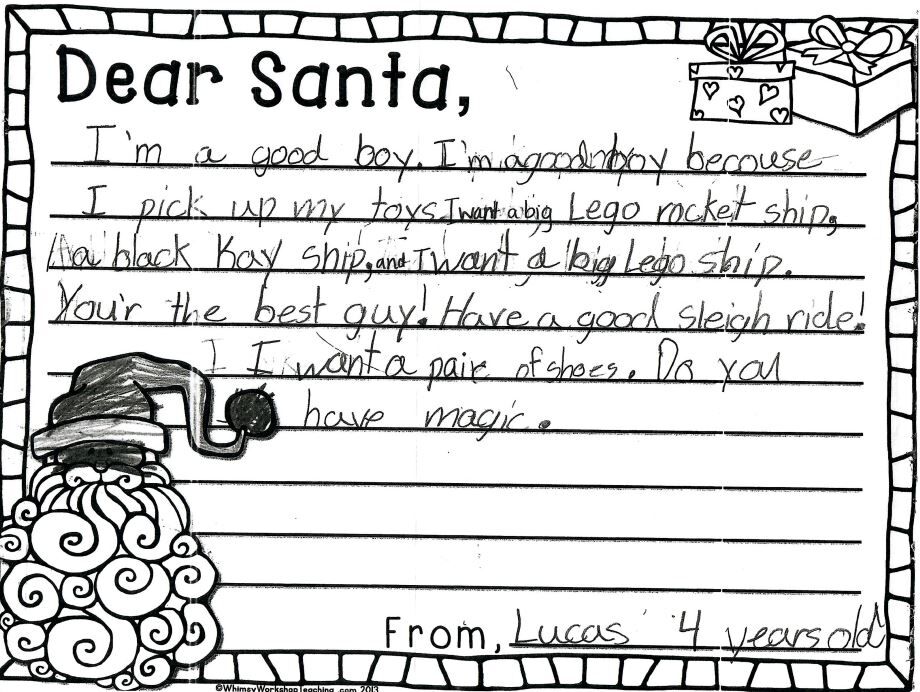 Dear Santa,
I'm a good boy. I'm a good boy becouse
I pick up my toys I want a big Lego rocket ship,
a black Kay ship, and I want a big Lego ship.
You'r the best guy! Have a good sleigh ride!
I want a pair of shoes. Do you
have magic.
From, Lucas 4 years old
©WhimsyWorkshopTeaching.com 2013